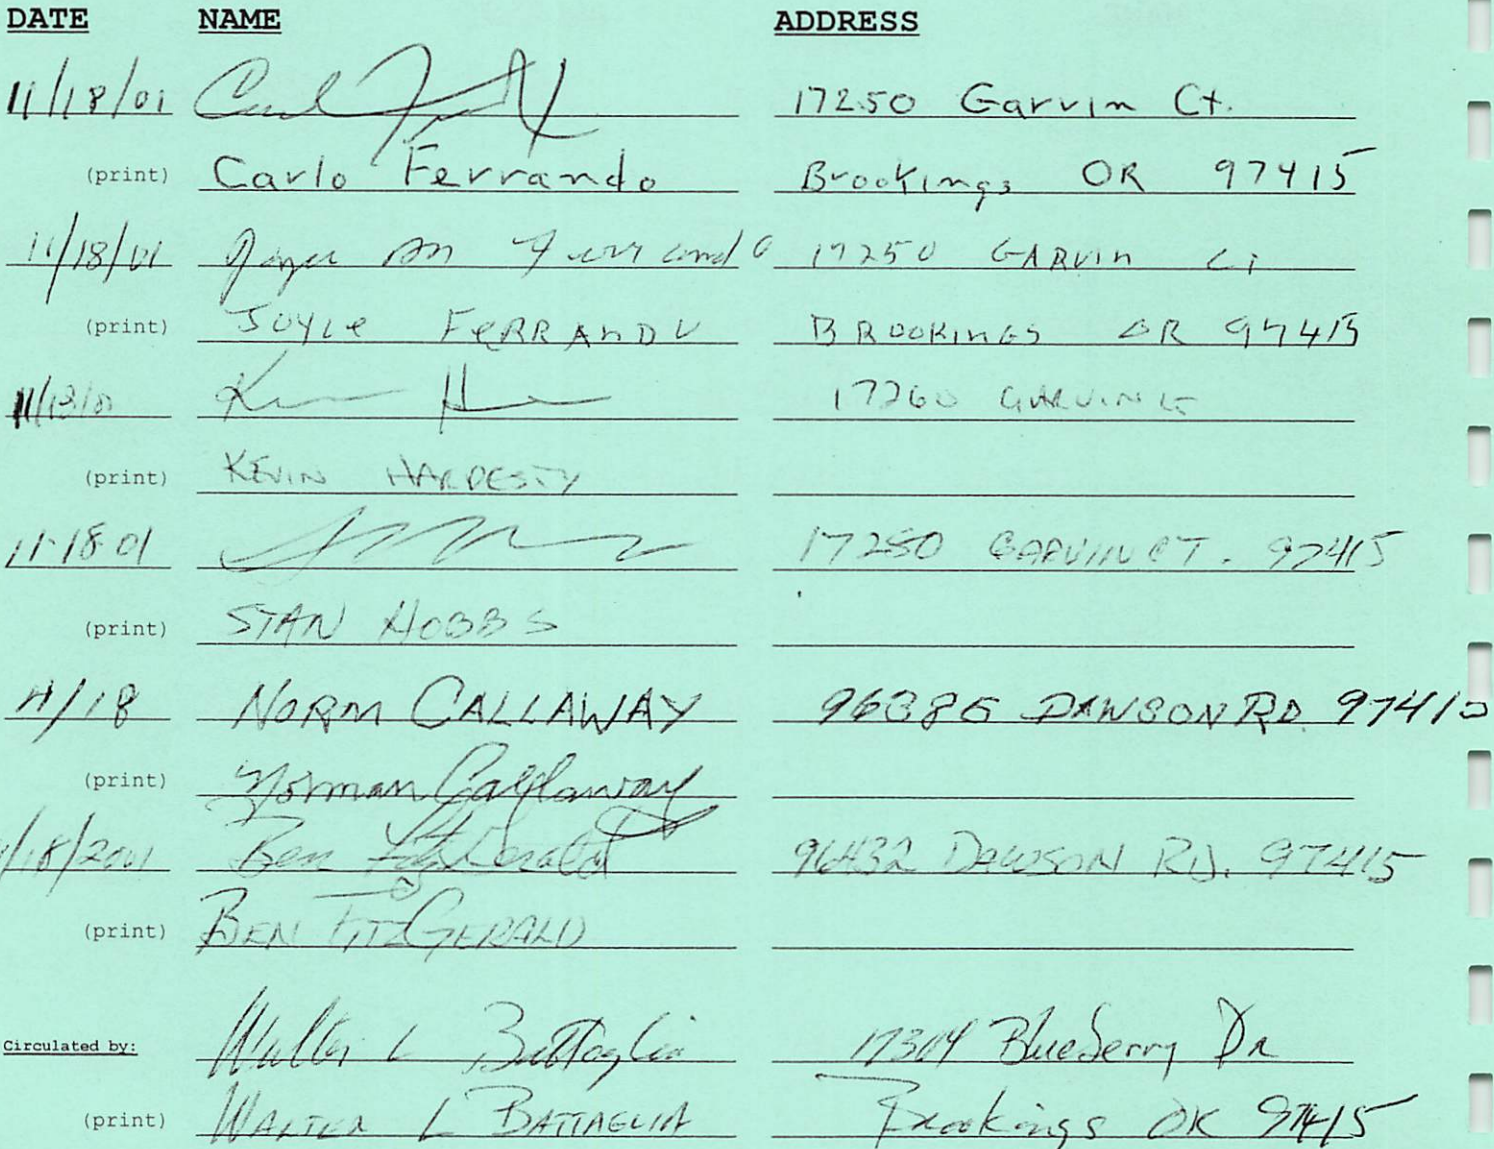 DATE NAME ADDRESS
11/18/01 Carlo Ferrando 17250 Garvin Ct.
(print) Carlo Ferrando Brookings OR 97415
11/18/01 Joyce M Ferrando 17250 GARVIN CT
(print) JOYCE FERRANDO BROOKINGS OR 97415
11/18/01 17260 GARVIN CT
(print) KEVIN HARDESTY
11-18-01 17250 GARVIN CT. 97415
(print) STAN HOBBS
11/18 NORM CALLAWAY 96386 DAWSON RD 97415
(print) Norman Callaway
11/18/2001 Ben FitzGerald 96432 DAWSON RD. 97415
(print) BEN FITZGERALD
Circulated by: Walter L Battaglia 17304 Blueberry Dr
(print) WALTER L BATTAGLIA Brookings OR 97415